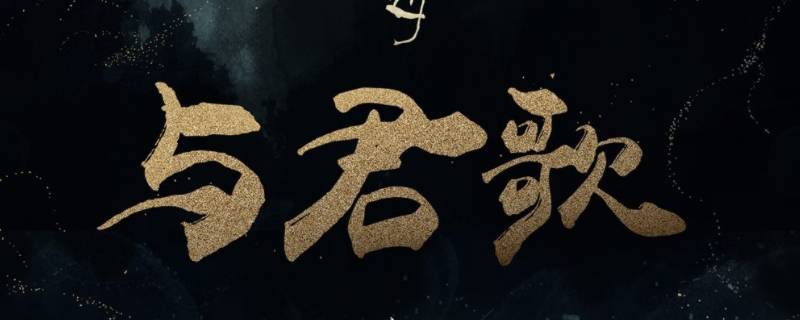 与君歌